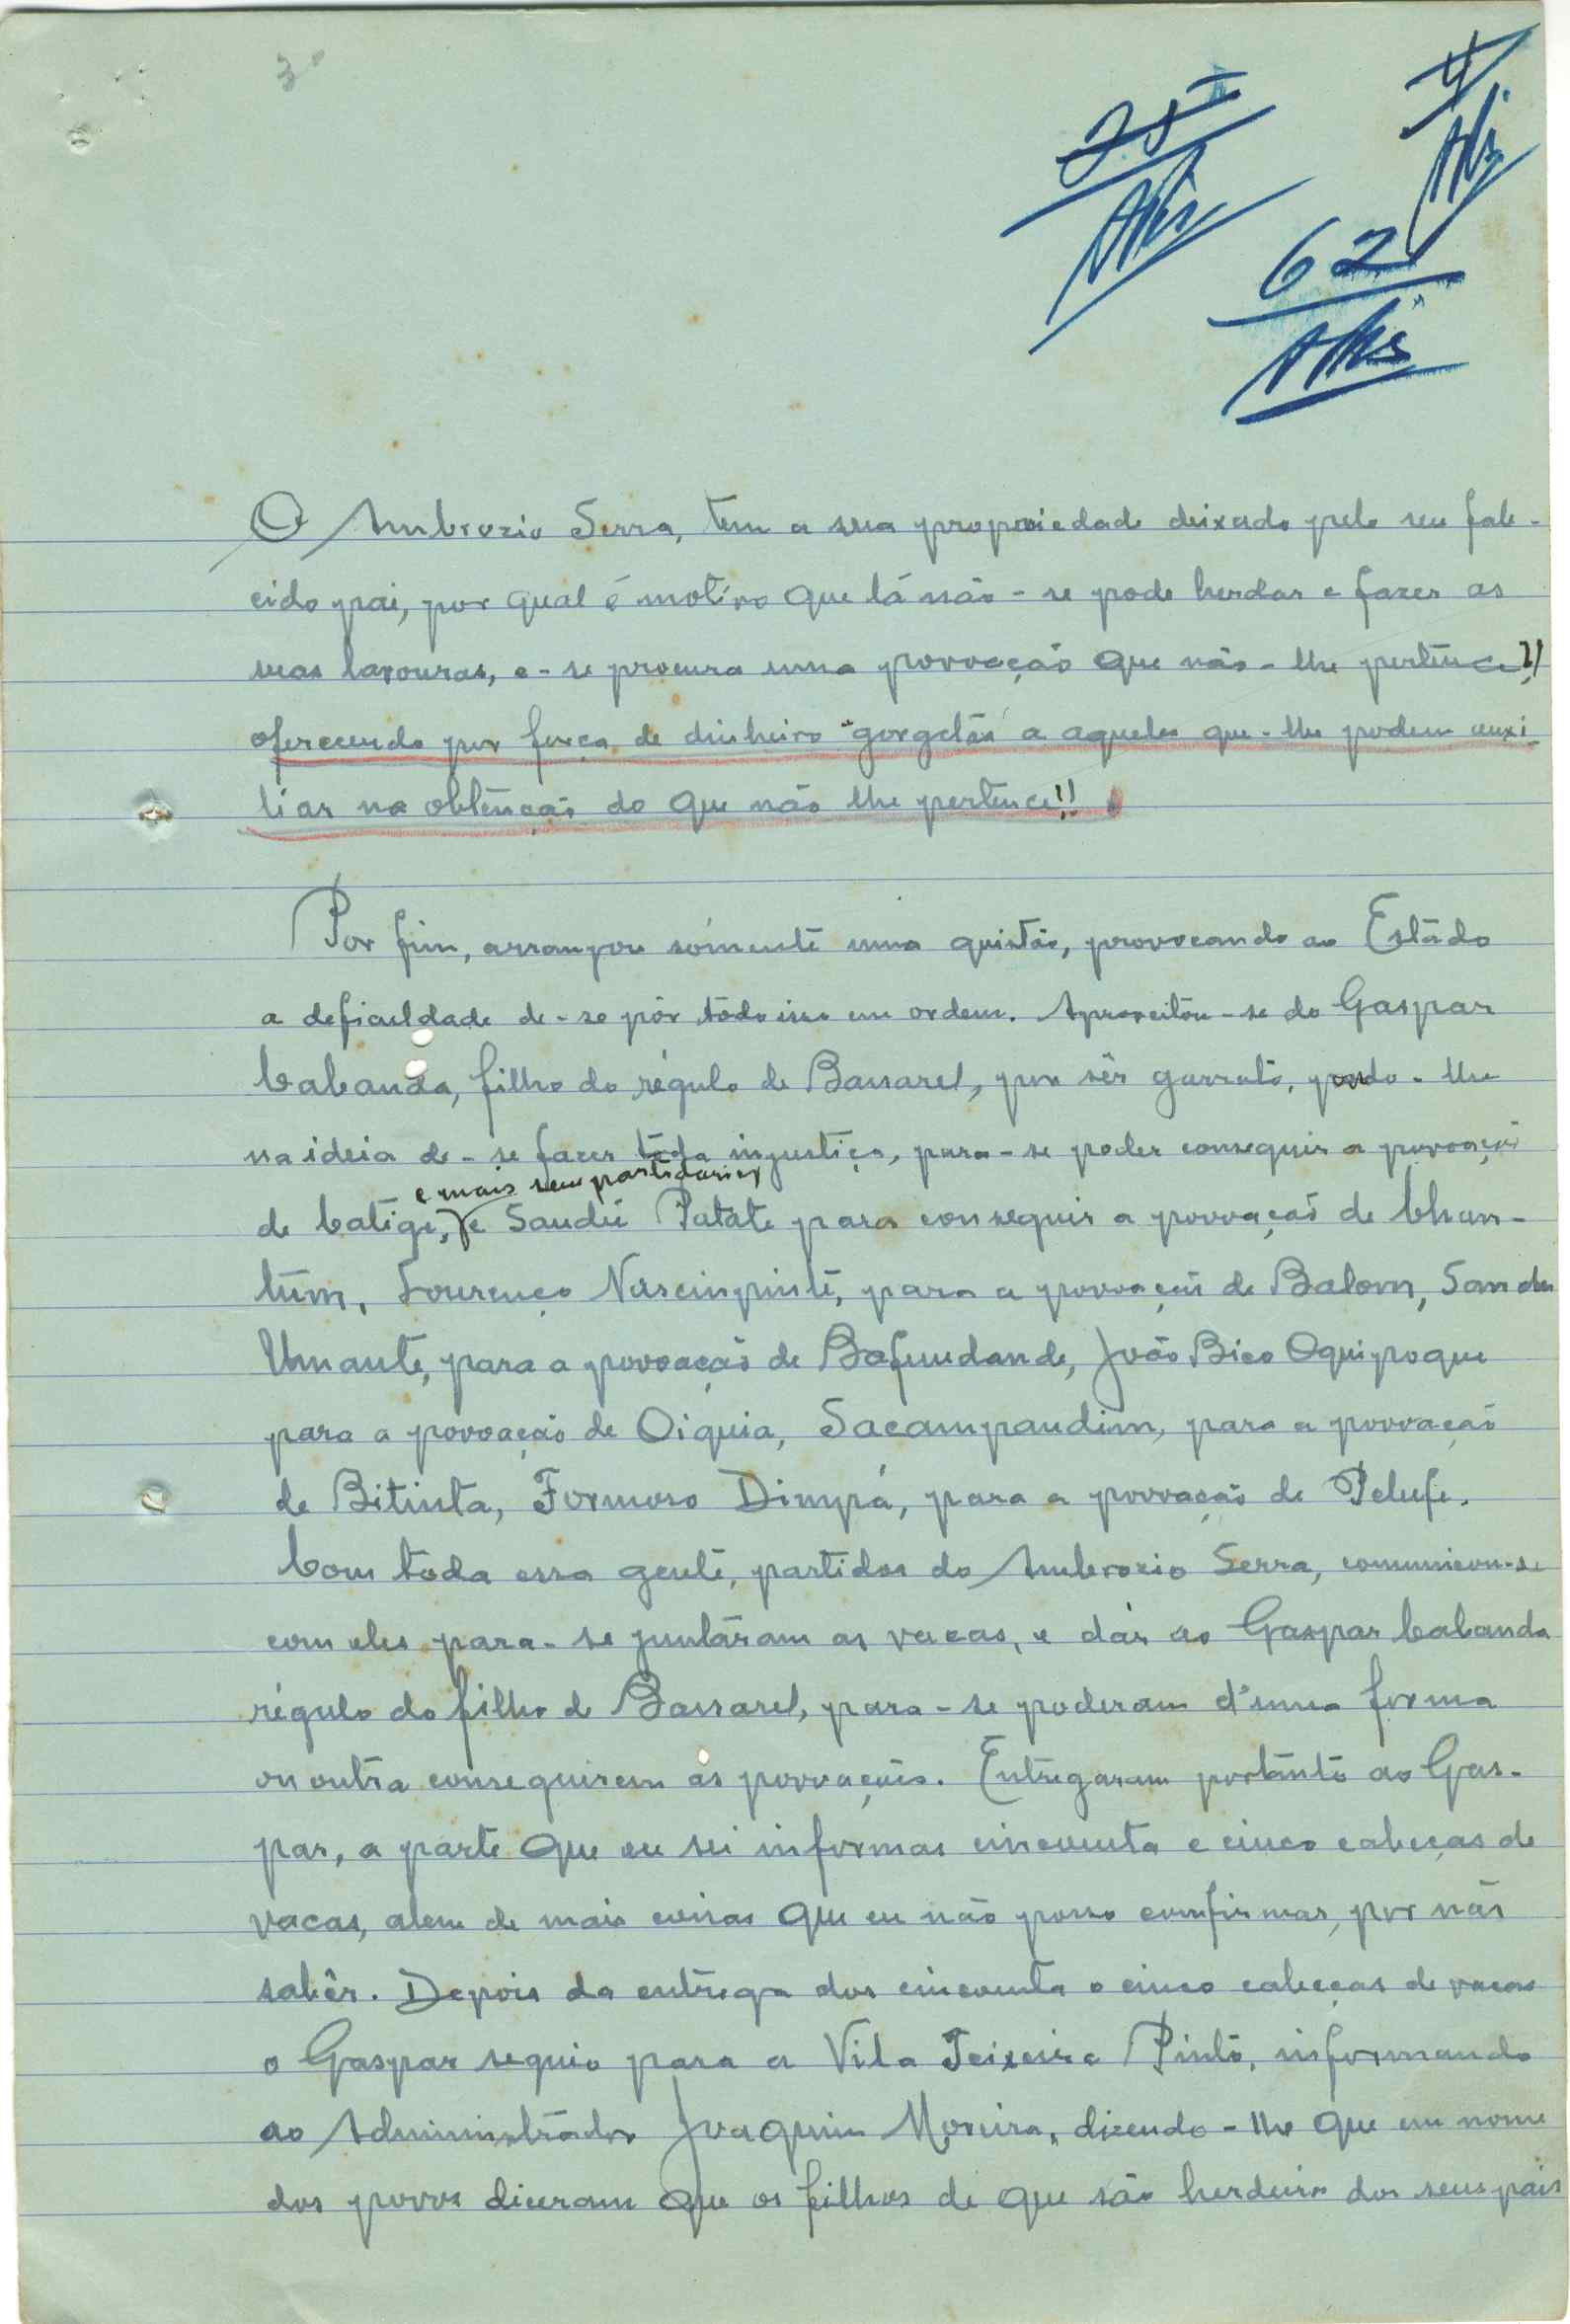 3º
62
O Ambrozio Serra, tem a sua propriedade deixado pelo seu fale-
cido pai, por qual é motivo que lá não-se pode herdar e fazer as
suas lavouras, e-se procura uma povoação que não-lhe pertênce?!
oferecendo por força de dinheiro "gorgetas" a aqueles que-lhe podem auxi-
liar na obtênção do que não lhe pertence!!
Por fim, arranjou sómente uma quistão, provocando ao Estádo
a deficuldade de-se pôr tôdo isso em ordem. Aproveitou-se do Gaspar
Cabanda, filho do régulo de Bassarel, por sêr garrato, pondo-lhe
na ideia de-se fazer tôda injustiça, para-se poder conseguir a povoação
e mais seus partidarios
de Catige, e Sandú Patate para conseguir a povoação de Chun-
tum, Lourenço Nascinpinte, para a povoação de Balom, Sandu
Umante, para a povoação de Bafundande, João Bico Oquipoque
para a povoação de Oiquia, Sacampandim, para a povoação
de Bitinta, Formoso Dimpá, para a povoação de Pelufe.
Com toda essa gente, partidos do Ambrozio Serra, comunicou-se
com eles para-se juntáram as vacas, e dár ao Gaspar Cabanda
régulo do filho de Bassarel, para-se poderam d'uma forma
ou outra conseguirem ás povoações. Entregaram portânto ao Gas-
par, a parte que eu sei informas cincoenta e cinco cabeças de
vacas, alem de mais coisas que eu não posso comfirmar, por não
sabêr. Depois da entrega dos cincoenta e cinco cabeças de vacas
o Gaspar seguio para a Vila Teixeira Pinto, informando
ao Administrádor Joaquim Moreira, dizendo-lhe que em nome
dos povos diceram que os filhos de que são herdeiros dos seus pais